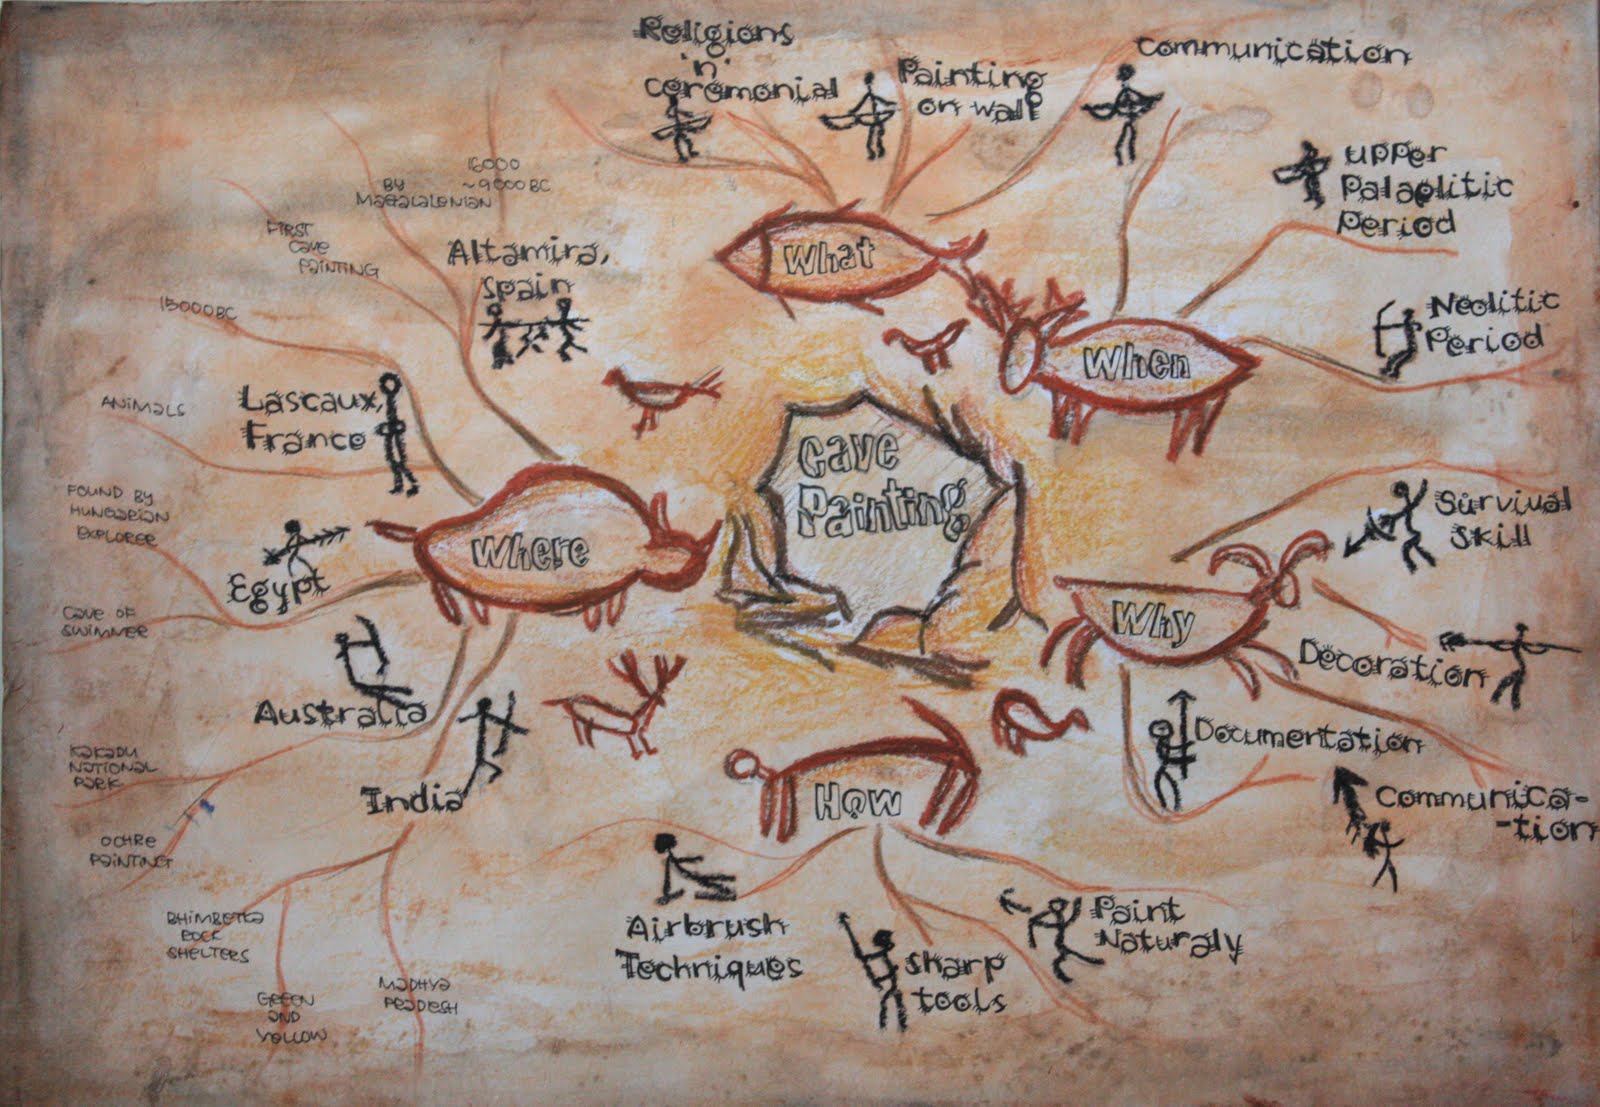 Cave
Painting
What
Religions
'n'
ceremonial
Painting
on wall
communication
When
upper
Palaolitic
Period
Neolitic
Period
Why
Survival
Skill
Decoration
Documentation
Communica-
-tion
How
Airbrush
Techniques
sharp
tools
Paint
Naturaly
Where
Altamira,
Spain
16000
~9000 BC
BY
MAGDALENIAN
FIRST
CAVE
PAINTING
Lascaux,
France
15000 BC
ANIMALS
Egypt
FOUND BY
HUNGARIAN
EXPLORER
CAVE OF
SWIMMER
Australia
KAKADU
NATIONAL
PARK
OCHRE
PAINTING
India
BHIMBETKA
ROCK
SHELTERS
GREEN
AND
YELLOW
MADHYA
PRADESH